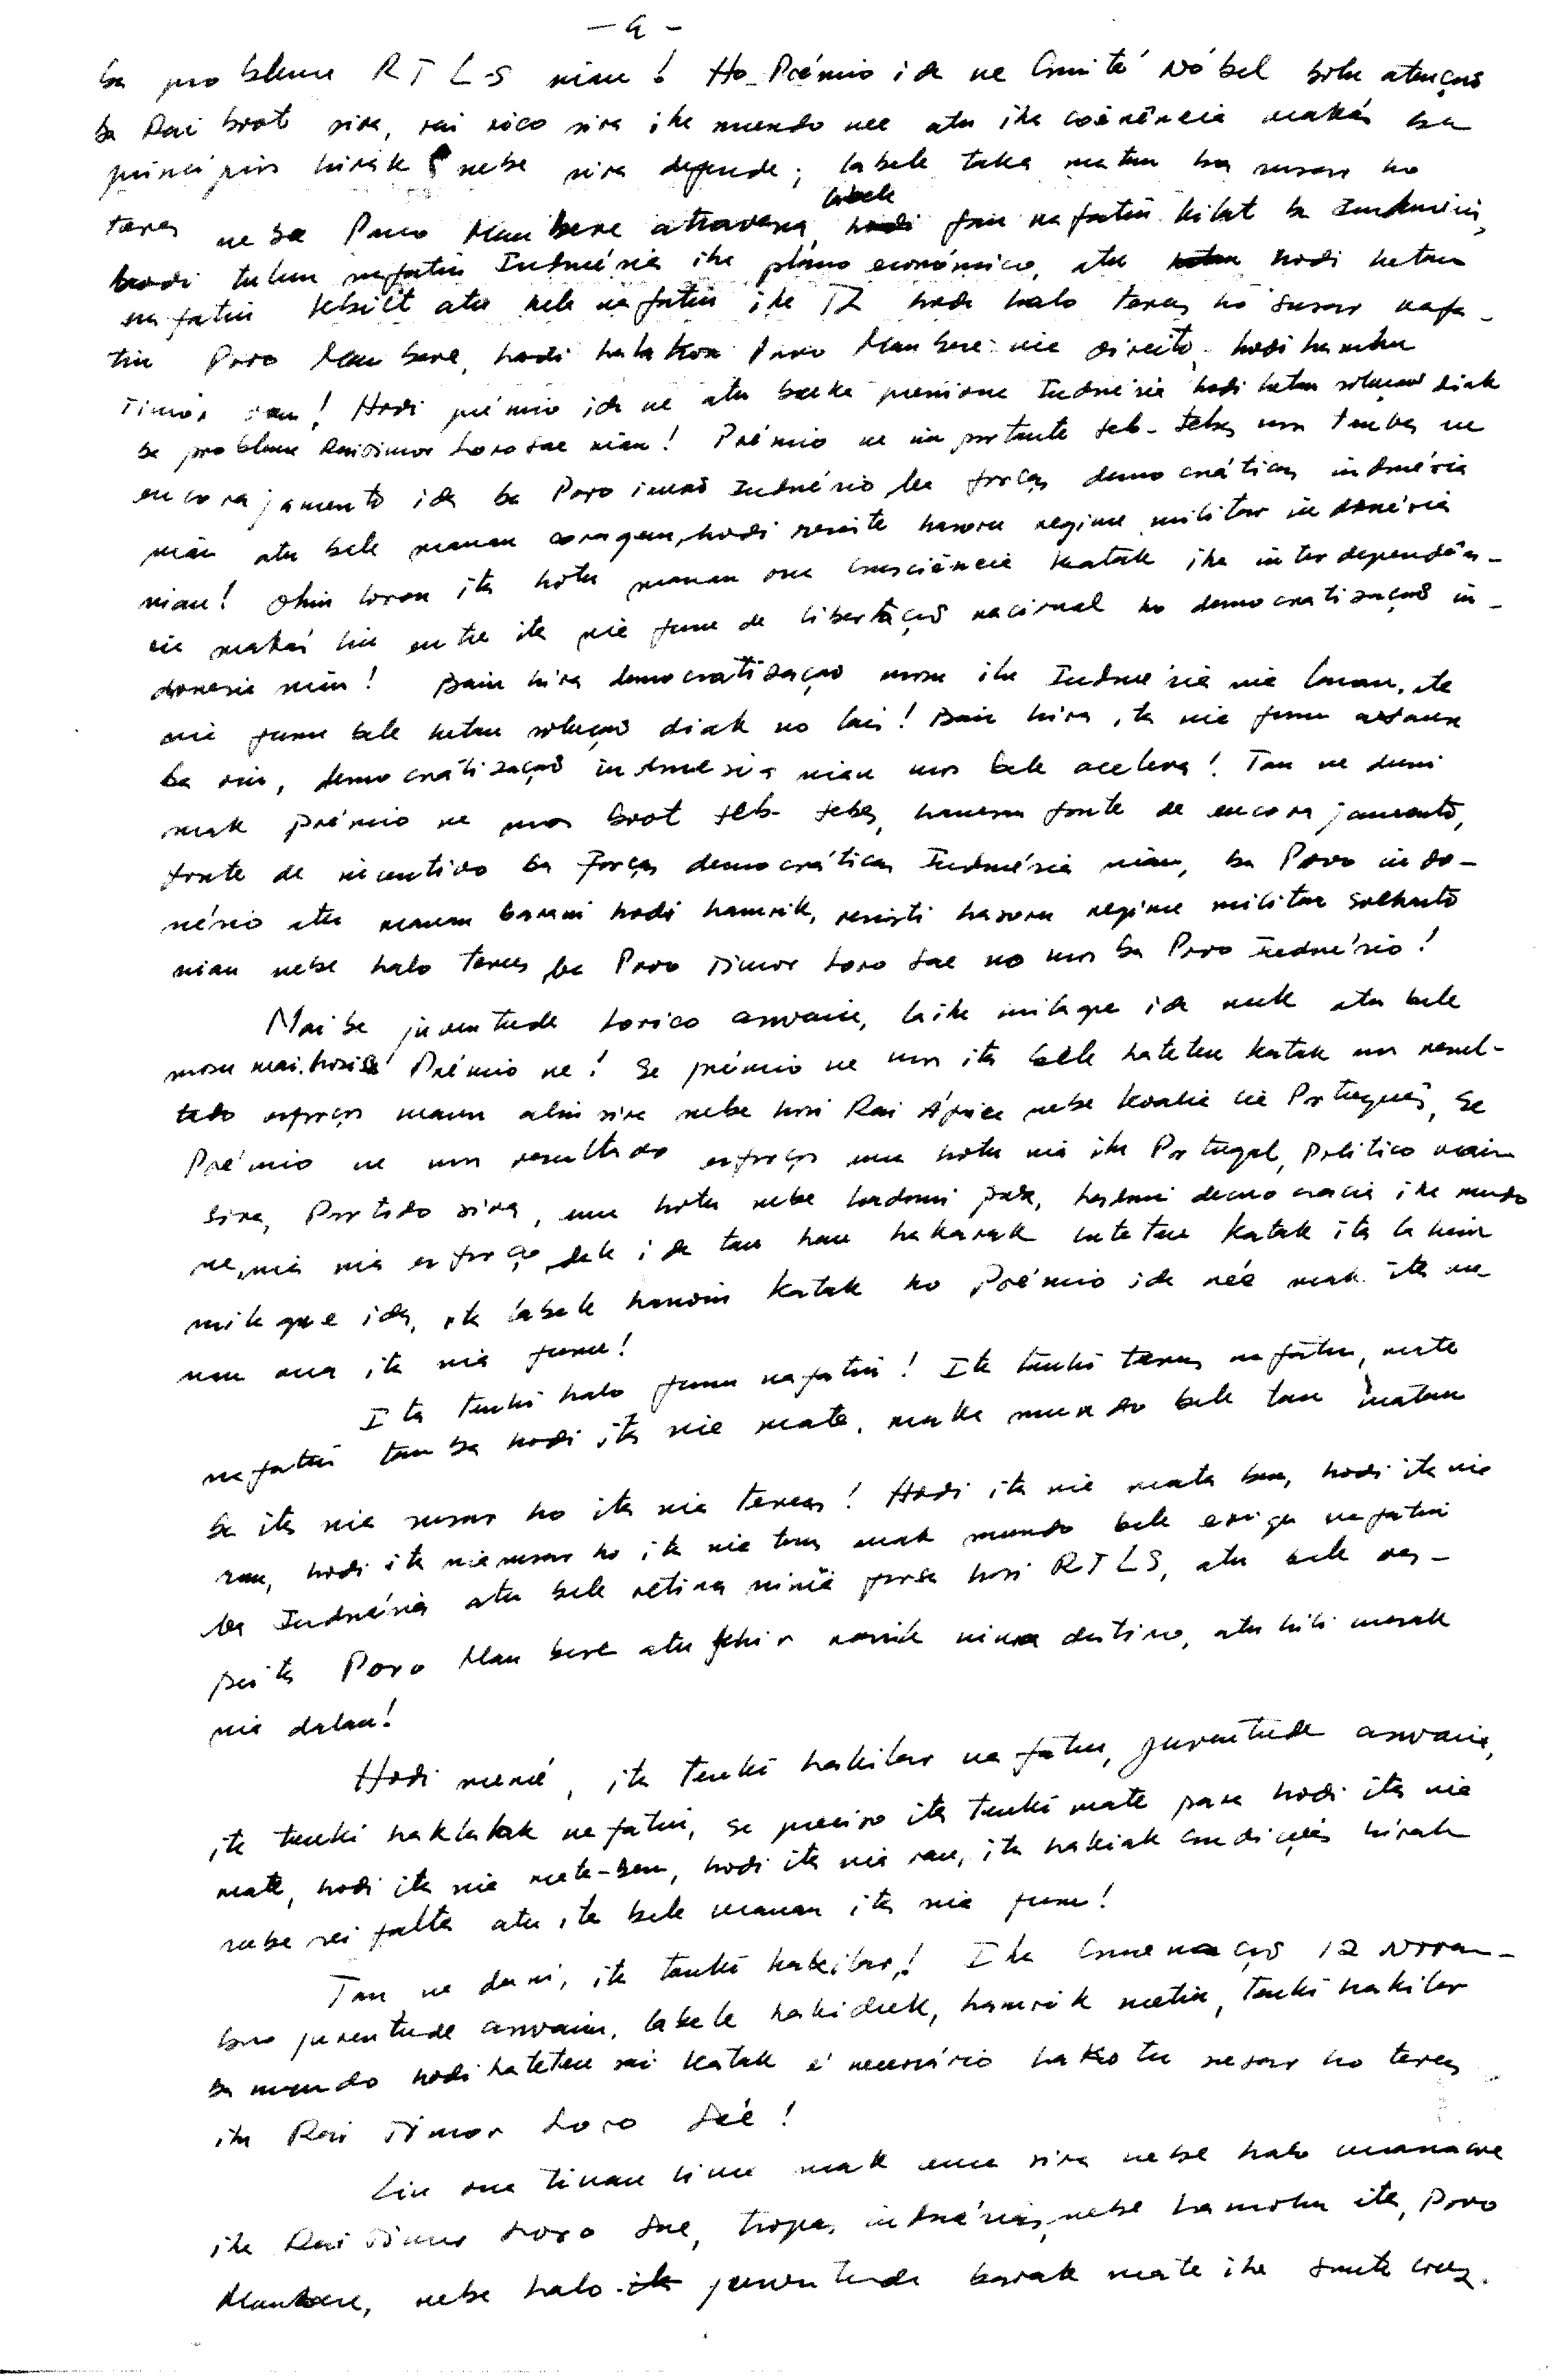 - 4 -
ba problema RTLS nian! Ho Prémio ida ne Comité Nóbel bolu atençaõ
ba Rai boot sira, rai rico sira iha mundo nee atu iha coerência makás ba
princípios hirak nebe sira defende; labele taka matan ba susar ho
terus nebe Povo Maubere atravessa, labele faan nafatin kilat ba Indonésia,
hodi tulun nafatin Indonésia iha plano económico, atu hodi hetan
nafatin kbiit atu hela nafatin iha TL hodi halo terus ho susar nafa-
tin Povo Maubere, hodi halakon Povo Maubere nia direito, hodi hamihu
Timór oan! Hodi prémio ida ne atu bele pressiona Indonésia hodi hetan soluçaõ diak
ba problema Rai Timor Loro Sae nian! Prémio ne importante teb-tebes mos tanba ne
encorajamento ida ba Povo irmaõ Indonésio, ba forças democráticas indonésia
nian atu bele manan coragem, hodi resiste hasoru regime militar indonésia
nian! Ohin loron ita hotu manan ona consciência katak iha interdependên-
cia makás liu entre ita nia funu de libertaçaõ nacional ho democratizaçaõ in-
donesia nian! Bain hira democratizaçaõ mosu iha Indonésia nia laran, ita
nia funu bele hetan soluçaõ diak no lais! Bain hira, ita nia funu avansa
ba oin, democratizaçaõ indonesia nian mos bele acelera! Tan ne duni
mak prémio ne mos boot teb-tebes, hanesan fonte de encorajamento,
fonte de incentivo ba Forças democráticas Indonésia nian, ba Povo indo-
nésio atu manan barani hodi hamrik, resisti hasoru regime militar Soeharto
nian nebe halo terus ba Povo Timor Loro Sae no mos ba Povo Indonésio!
Maibe juventude Lorico aswain, laiha milagre ida mak atu bele
mosu mai hosi Prémio ne! Se prémio ne mos ita bele hateten katak mos resul-
tado esforços maun alin sira nebe hosi Rai África nebe koalia lia Português, se
Prémio ne mos resultado esforços ema hotu nia iha Portugal, politico nain
sira, Partido sira, ema hotu nebe hadomi paz, hadomi democracia iha mundo
ne, nia nia esforço, dala ida tan hau hakarak hateten katak ita la hein
milagre ida, ita labele hanoin katak ho Prémio ida neé mak ita ma-
nan ona ita nia funu!
Ita tenki halo funu nafatin! Ita tenki terus nafatin, mate
nafatin tan ba hodi ita nia mate, maka mundo bele tau matan
ba ita nia susar ho ita nia terus! Hodi ita nia mate ban, hodi ita nia
ran, hodi ita nia susar ho ita nia terus mak mundo bele exige nafatin
ba Indonésia atu bele retira ninia forsa hosi RTLS, atu bele res-
peita Povo Maubere atu fihir rasik ninia destino, atu hili mesak
nia dalan!
Hodi nuneé, ita tenki hakilar nafatin, juventude aswain,
ita tenki haklalak nafatin, se preciso ita tenki mate para hodi ita nia
mate, hodi ita nia mate-ban, hodi ita nia ran, ita hakiak condições hirak
nebe sei falta atu ita bele manan ita nia funu!
Tan ne duni, ita tenki hakilar! Iha Comemoraçaõ 12 Novem-
bro juventude aswain, labele hakiduk, hamrik metin, tenki hakilar
ba mundo hodi hateten sai katak é necessário hakotu susar ho terus
iha Rai Timor Loro Saé!
Liu ona tinan lima mak ema sira nebe halo massacre
iha Rai Timor Loro Sae, tropas indonésias, nebe hamohu ita, Povo
Maubere, nebe halo juventude barak mate iha Santa Cruz.